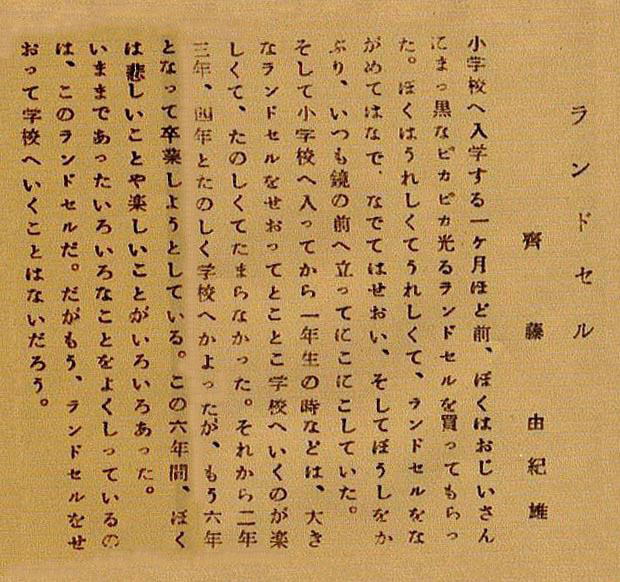 ランドセル
齊藤由紀雄
小学校へ入学する一ケ月ほど前、ぼくはおじいさん
にまっ黒なピカピカ光るランドセルを買ってもらっ
た。ぼくはうれしくてうれしくて、ランドセルをな
がめてはなで、なでてはせおい、そしてぼうしをか
ぶり、いつも鏡の前へ立ってにこにこしていた。
そして小学校へ入ってから一年生の時などは、大き
なランドセルをせおってとことこ学校へいくのが楽
しくて、たのしくてたまらなかった。それから二年
三年、四年とたのしく学校へかよったが、もう六年
となって卒業しようとしている。この六年間、ぼく
は悲しいことや楽しいことがいろいろあった。
いままであったいろいろなことをよくしっているの
は、このランドセルだ。だがもう、ランドセルをせ
おって学校へいくことはないだろう。